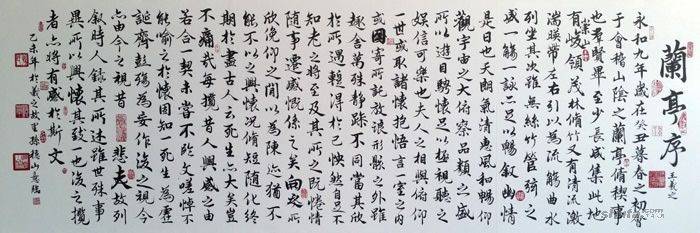 蘭亭序
王羲之
永和九年歲在癸丑暮春之初會
于會稽山陰之蘭亭脩稧事
也羣賢畢至少長咸集此地
有崇山峻領茂林脩竹又有清流激
湍暎帶左右引以為流觴曲水
列坐其次雖無絲竹管弦之
盛一觴一詠亦足以暢敘幽情
是日也天朗氣清惠風和暢仰
觀宇宙之大俯察品類之盛
所以遊目騁懷足以極視聽之
娛信可樂也夫人之相與俯仰
一世或取諸懷抱悟言一室之內
或因寄所託放浪形骸之外雖
趣舍萬殊靜躁不同當其欣
於所遇暫得於己怏然自足不
知老之將至及其所之既惓情
隨事遷感慨係之矣向之所
欣俛仰之間以為陳迹猶不
能不以之興懷況脩短隨化終
期於盡古人云死生亦大矣豈
不痛哉每攬昔人興感之由
若合一契未嘗不臨文嗟悼不
能喻之於懷固知一死生為虛
誕齊彭殤為妄作後之視今
亦由今之視昔悲夫故列
敘時人錄其所述雖世殊事
異所以興懷其致一也後之攬
者亦將有感於斯文
乙未年於羲之故里孫